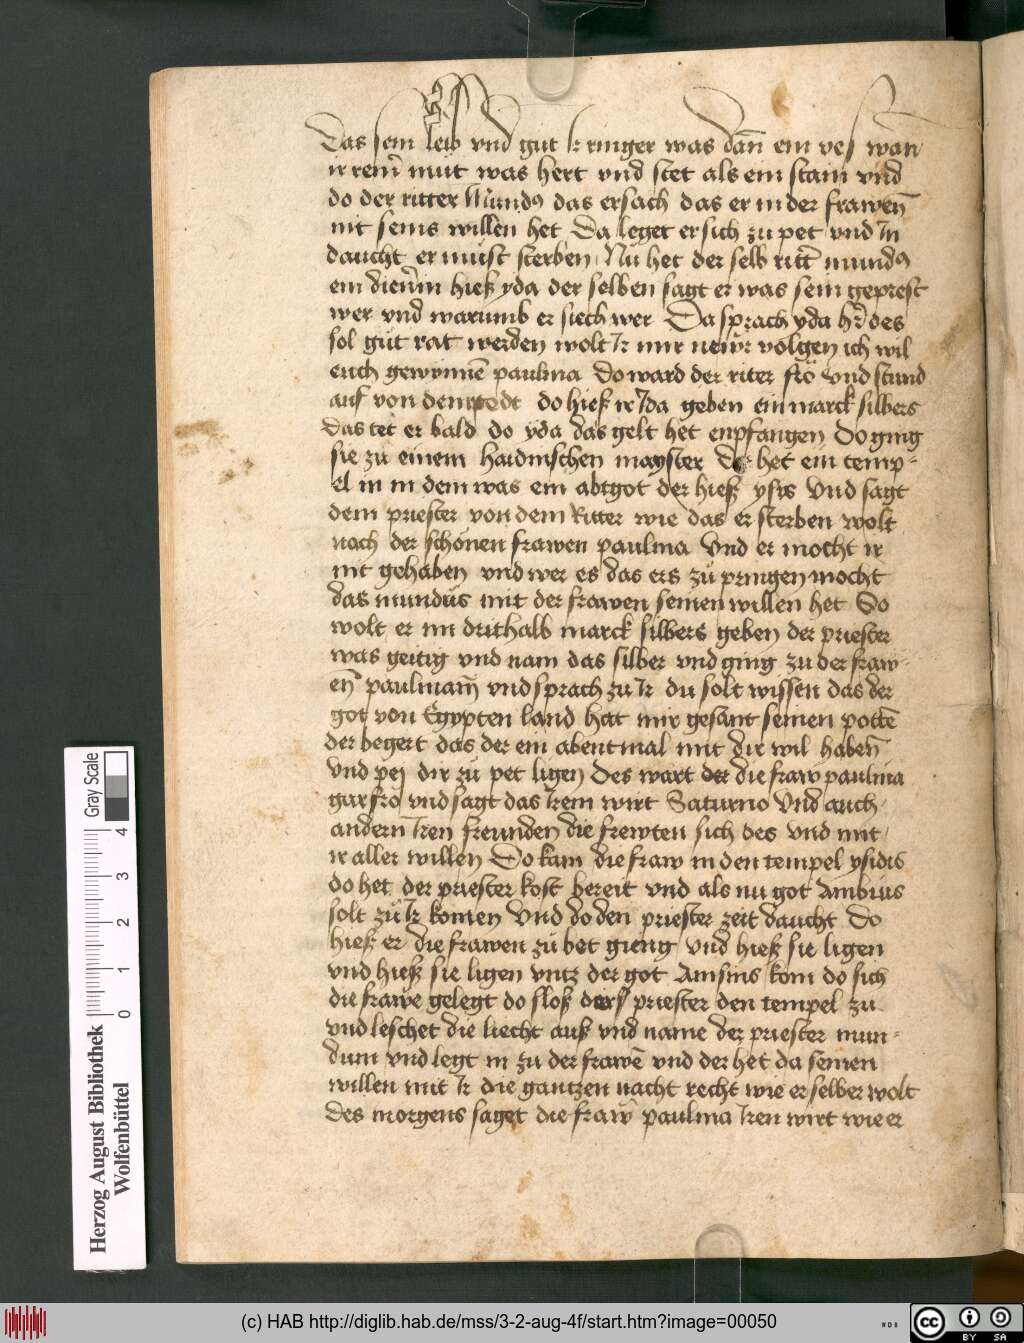 Das sein leib vnd gut Ir ringer was dañ ein ves wañ
ir reins mut was hert vnd stet als ein stain vnd
do der ritter Mundus das ersach das er in der frawen̄
nit seins willen het Da leget er sich zu pet vnd In
daucht er must sterben Nu het der selb ritt̄ mundus
ein dienerin hieß yda der selben sagt er was sein geprest
wer vnd warumb er siech wer Da sprach yda hr̄ des
sol gut rat werden wolt Ir mir newr volgen ich wil
euch gewynnē paulina do ward der riter fro vnd stund
auf von dem pedt do hieß ir Ida geben ein marck silbers
das tet er bald do yda das gelt het enpfangen Do ging
sie zu einem haidnischen mayster der het ein temp-
el in in dem was ein abtgot der hieß ysys Vnd sagt
dem priester von dem Ritter wie das er sterben wolt
nach der schönen frawen paulina Vnd er mocht ir
nit gehaben vnd wer es das ers zu pringen mocht
das mundus mit der frawen seinen willen het So
wolt er im drithalb marck silbers geben der priester
was geitig vnd nam das silber vnd ging zu der fraw-
en̄ paulinam̄ vnd sprach zu Ir du solt wissen das der
got von Egypten land hat mir gesant seinen pottē
der begert das der ein abentmal mit dir wil haben̄
vnd pej dir zu pet ligen Des wart die fraw paulina
gar fro vnd sagt das Irem wirt Saturno Vnd auch
andern Iren freunden die frewten sich des vnd mit
ir aller willen Do kam die fraw in den tempel ysidis
do het der priester kost bereit vnd als nu got Ambius
solt zu Ir komen Vnd do den priester zeit daucht Do
hieß er die frawen zu bet gieng vnd hieß sie ligen
vnd hieß sie ligen vntz der got Amsins kom do sich
die frawe gelegt do sloß der priester den tempel zu
vnd leschet die liecht auß vnd name der priester mun-
dum vnd legt in zu der frawē vnd der het da seinen
willen mit Ir die gantzen nacht recht wie er selber wolt
des morgens saget die fraw paulina Iren wirt wie er
Gray Scale
4
3
2
1
0
Herzog August Bibliothek
Wolfenbüttel
(c) HAB http://diglib.hab.de/mss/3-2-aug-4f/start.htm?image=00050
WDB
cc
BY SA